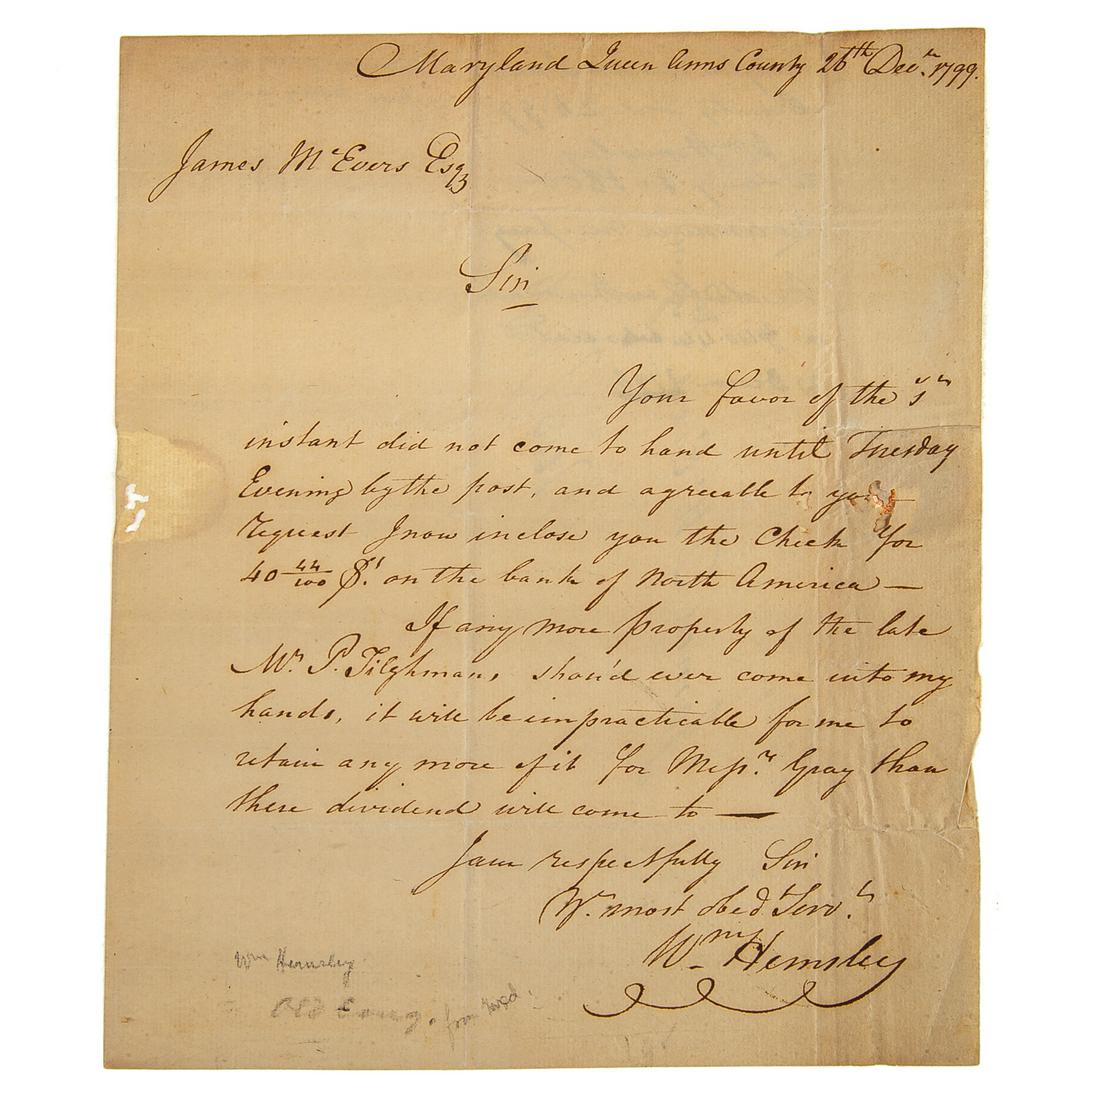 Maryland Queen Anns County 26th Decr. 1799.
James McEvers Esqr
Sir
Your favor of the 5th
instant did not come to hand until Tuesday
Evening by the post, and agreeable to your
request I now inclose you the Check for
40 44/100 $s. on the bank of North America —
If any more property of the late
Mr. P. Tilghman, shou'd ever come into my
hands, it will be impracticable for me to
retain any more of it for Messrs. Gray than
these dividend will come to —
I am respectfully Sir
Yr. most obedt. Servt.
Wm. Hemsley
Wm Hemsley
Old Cong. from Md.